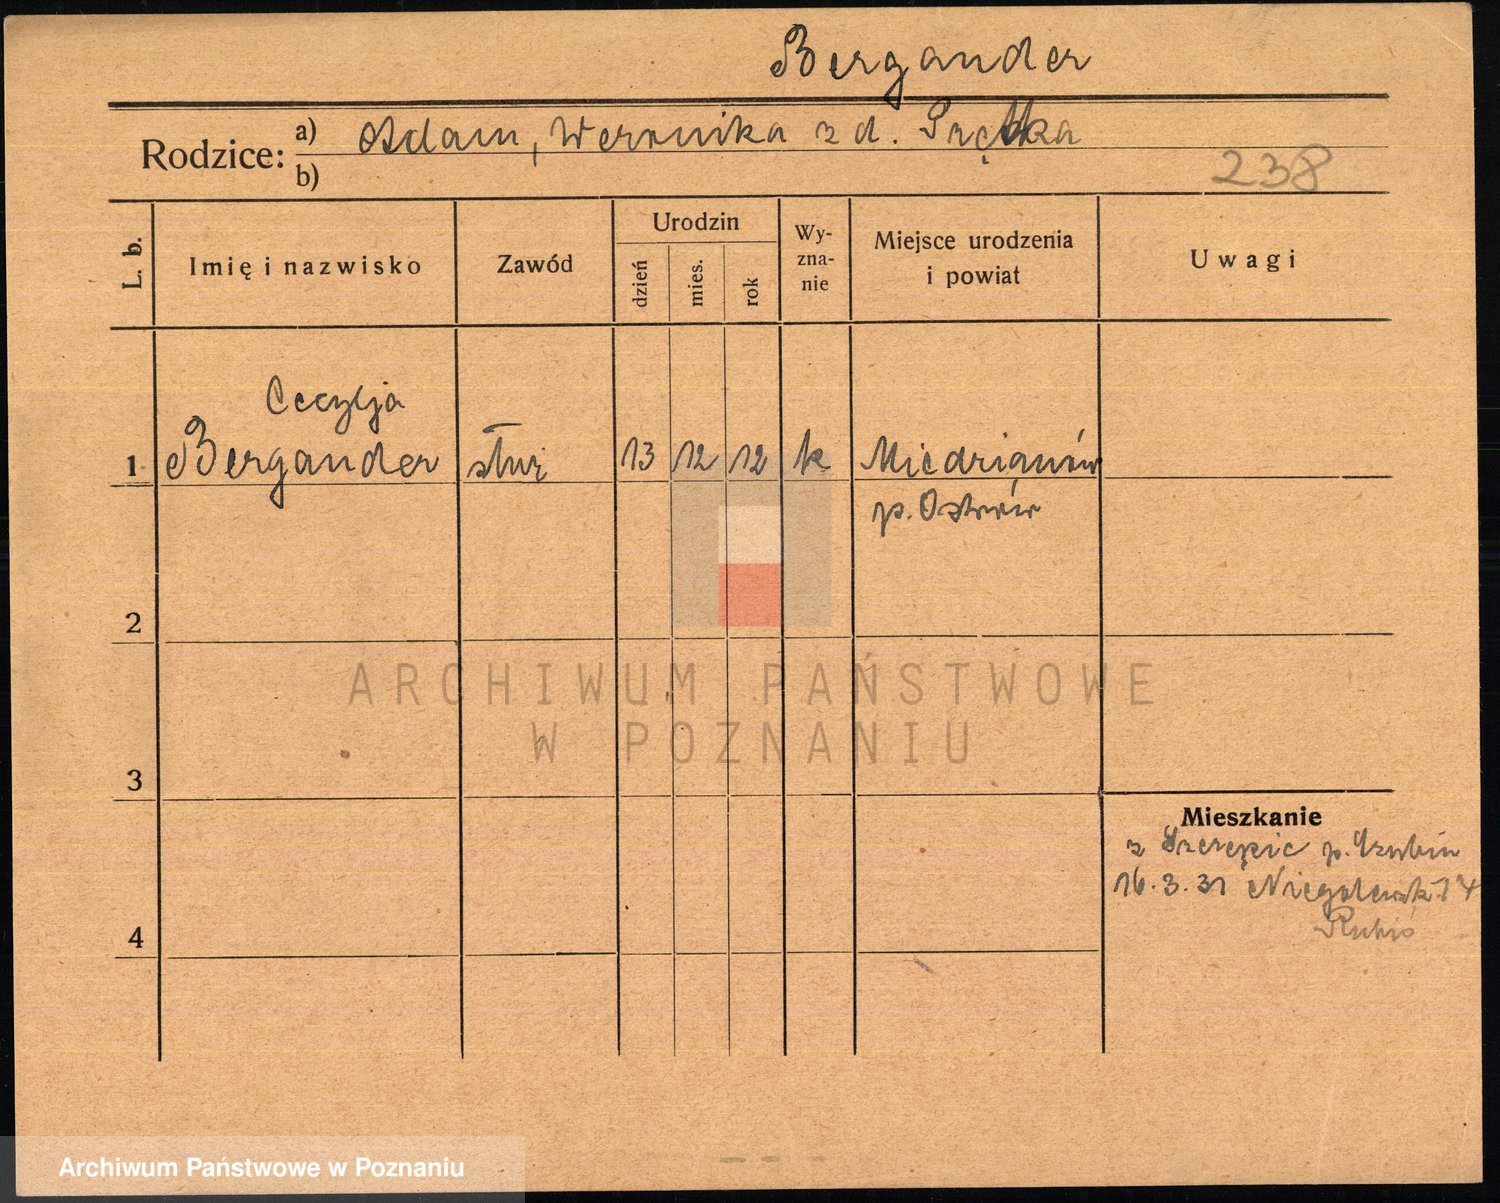 Bergander
Rodzice: a) Adam, Weronika z d.
b)
238
L. b.
Imię i nazwisko
Zawód
Urodzin
dzień
mies.
rok
Wy-
zna-
nie
Miejsce urodzenia
i powiat
Uwagi
Cecylja
1 Bergander służ 13 12 12 k Miedzianów
p. Ostrów
2
ARCHIWUM PAŃSTWOWE
W POZNANIU
3
4
Mieszkanie
z p.
16.3.31
Archiwum Państwowe w Poznaniu